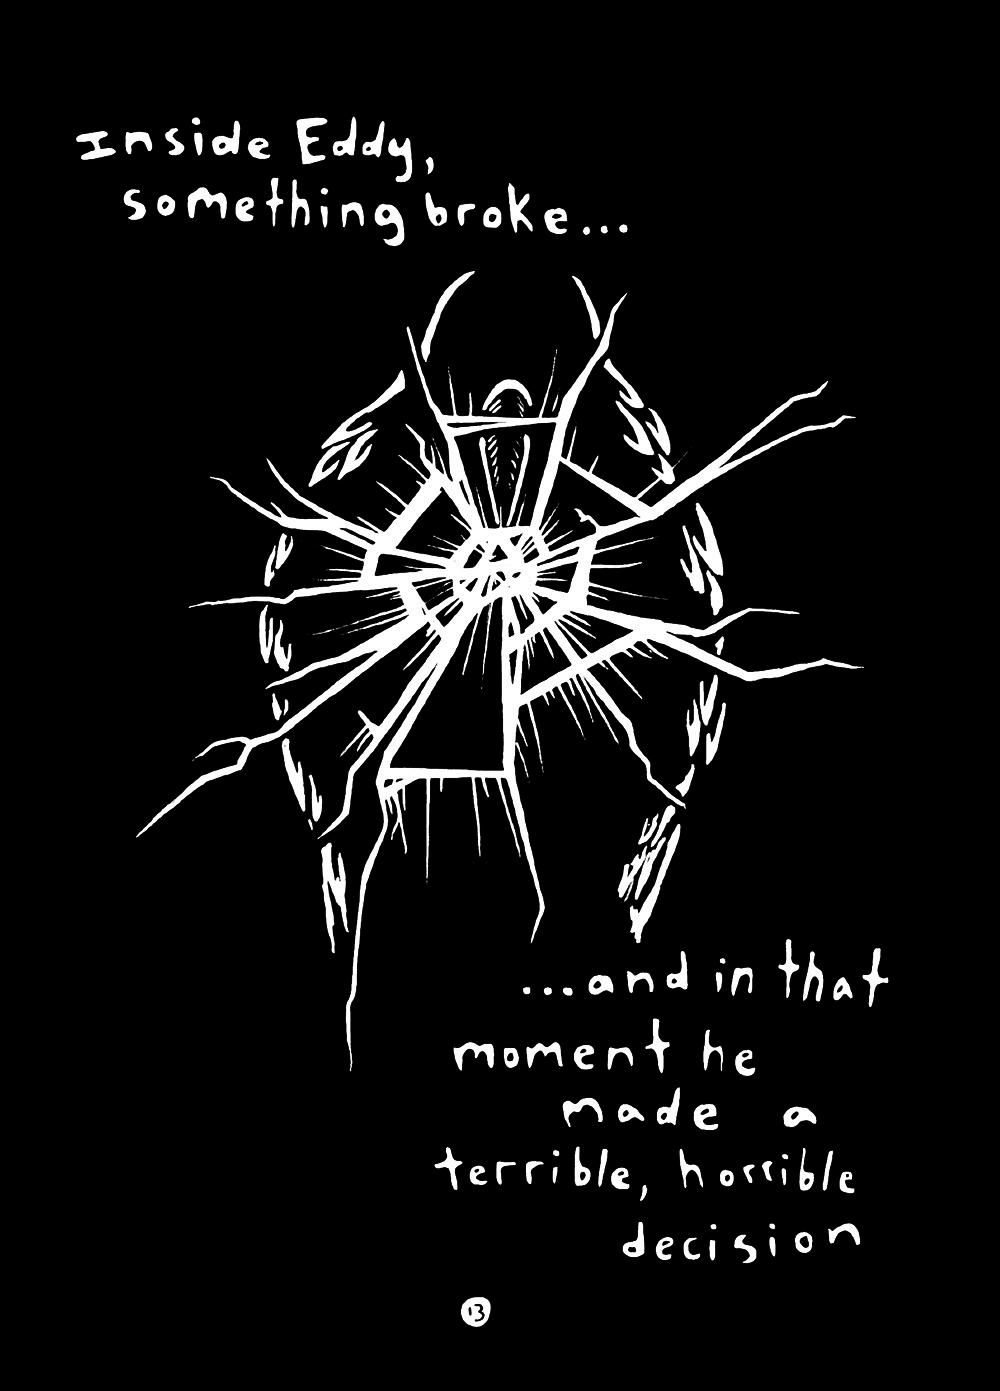 Inside Eddy,
something broke...
...and in that
moment he
made a
terrible, horrible
decision
13